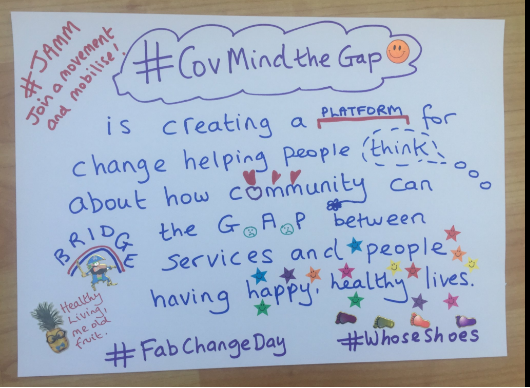 #JAMM
Join a movement
and mobilise!
#CovMindtheGap
is creating a PLATFORM for
change helping people think
about how community can
BRIDGE the G.A.P between
services and people
having happy, healthy lives.
Healthy
Living,
me old
fruit.
#FabChangeDay
#WhoseShoes